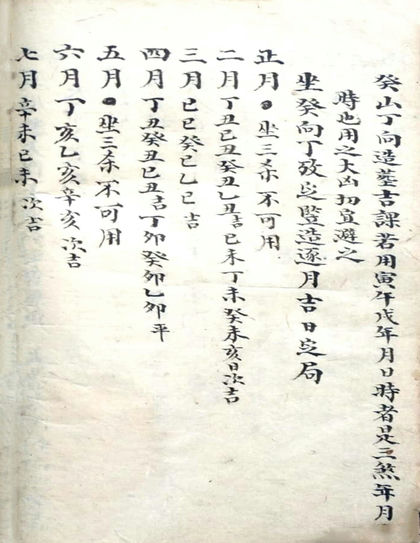 癸山丁向造葬吉課若用寅午戌年月日時者是三煞年月
時也用之大凶切宜避之
坐癸向丁改定豎造逐月吉日定局
正月●坐三杀不可用
二月丁丑己丑癸丑乙丑吉己未丁未癸未亥日次吉
三月己巳癸巳乙巳吉
四月丁丑癸丑己丑吉丁卯癸卯乙卯平
五月●坐三杀不可用
六月丁亥乙亥辛亥次吉
七月辛未己未次吉